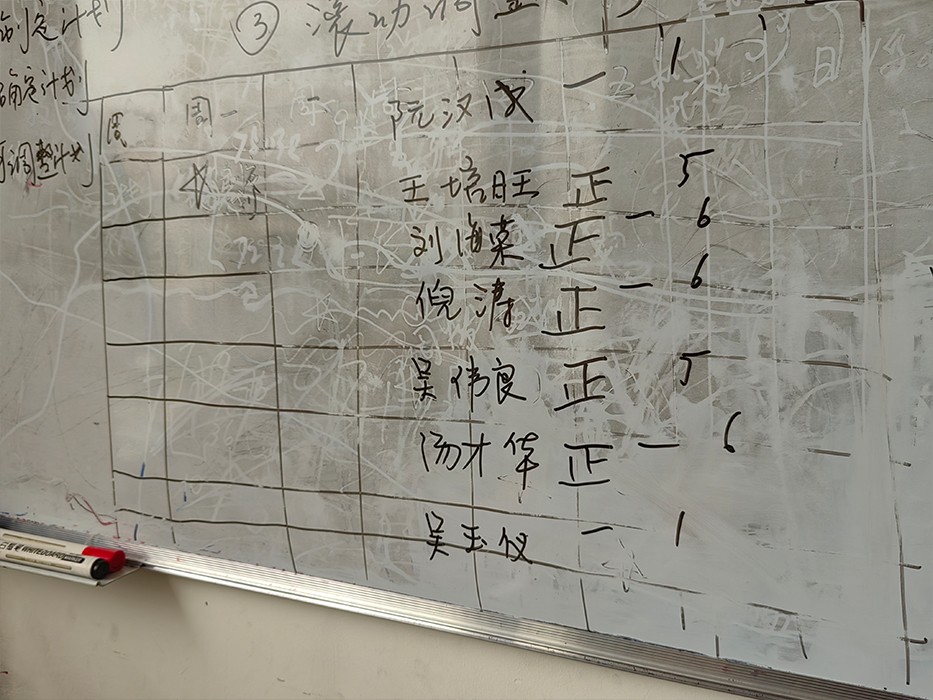 制定计划
确定计划
调整计划
③ 滚动调整
周 周一 二 日
阮汉成 一 1
王培旺 正 5
刘海棠 正一 6
倪涛 正一 6
吴伟良 正 5
汤才华 正一 6
吴玉仪 一 1
WHITEBOARD